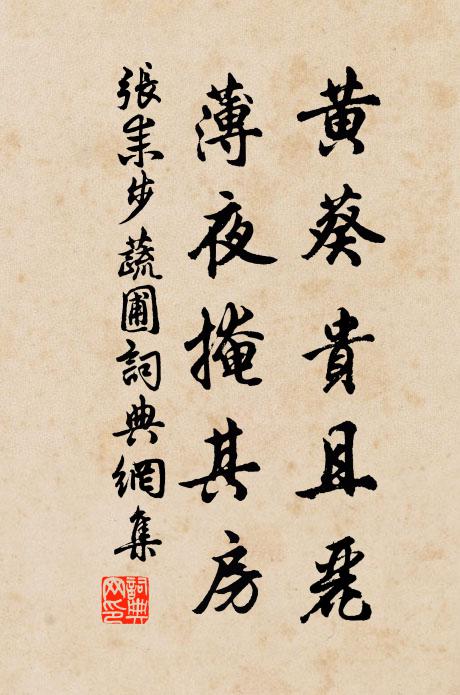 黄葵貴且麗
薄夜掩其房
張耒步蔬圃詞典網集
詞典網印